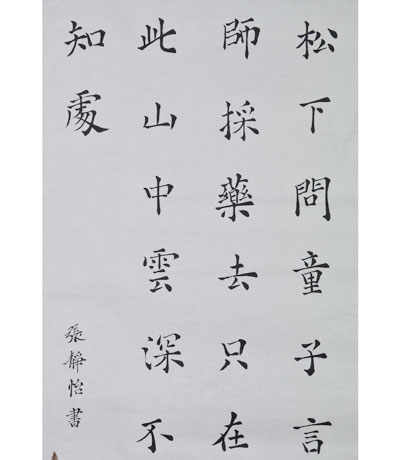 松下問童子言
師採藥去只在
此山中雲深不
知處
張靜怡書